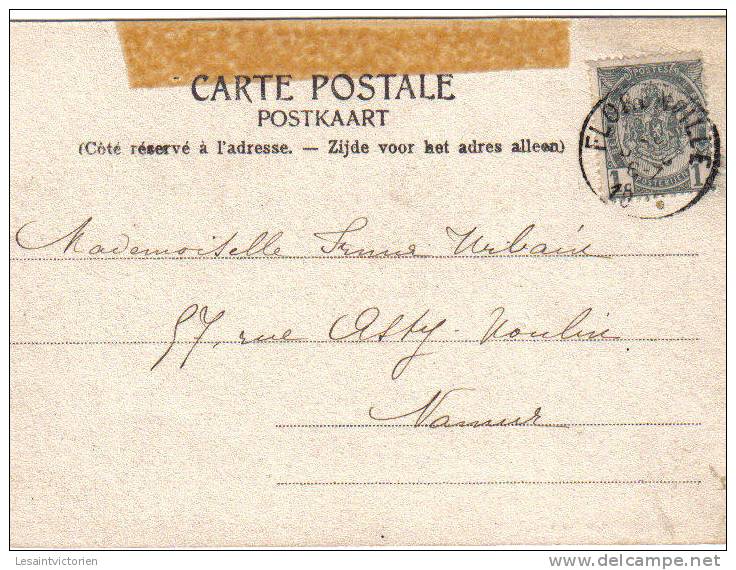 CARTE POSTALE
POSTKAART
(Côté réservé à l'adresse. — Zijde voor het adres alleen)
POSTES
1 1
POSTERIJEN
Mademoiselle Urbain
57, rue
Namur
Lesaintvictorien
delcampe.net